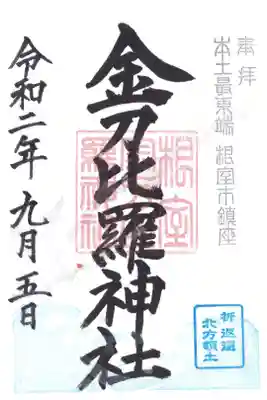 奉拝
本土最東端 根室市鎮座
金刀比羅神社
令和二年 九月五日
根室
金刀比
羅神社
祈返還
北方領土